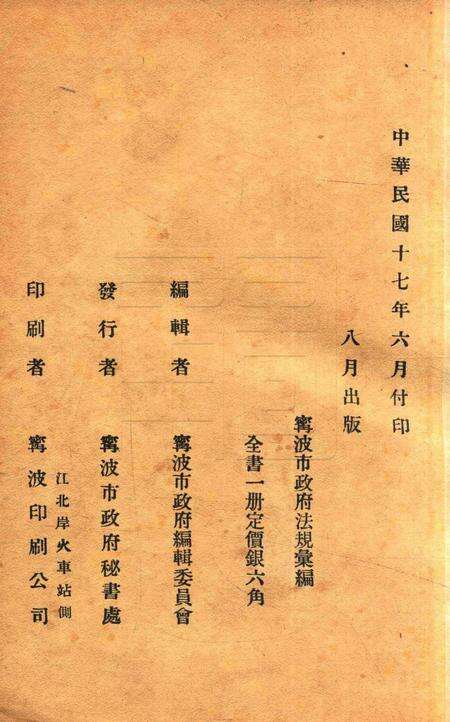 中華民國十七年六月付印
八月出版
寗波市政府法規彙編
全書一册定價銀六角
編輯者 寗波市政府編輯委員會
發行者 寗波市政府秘書處
江北岸火車站側
印刷者 寗波印刷公司